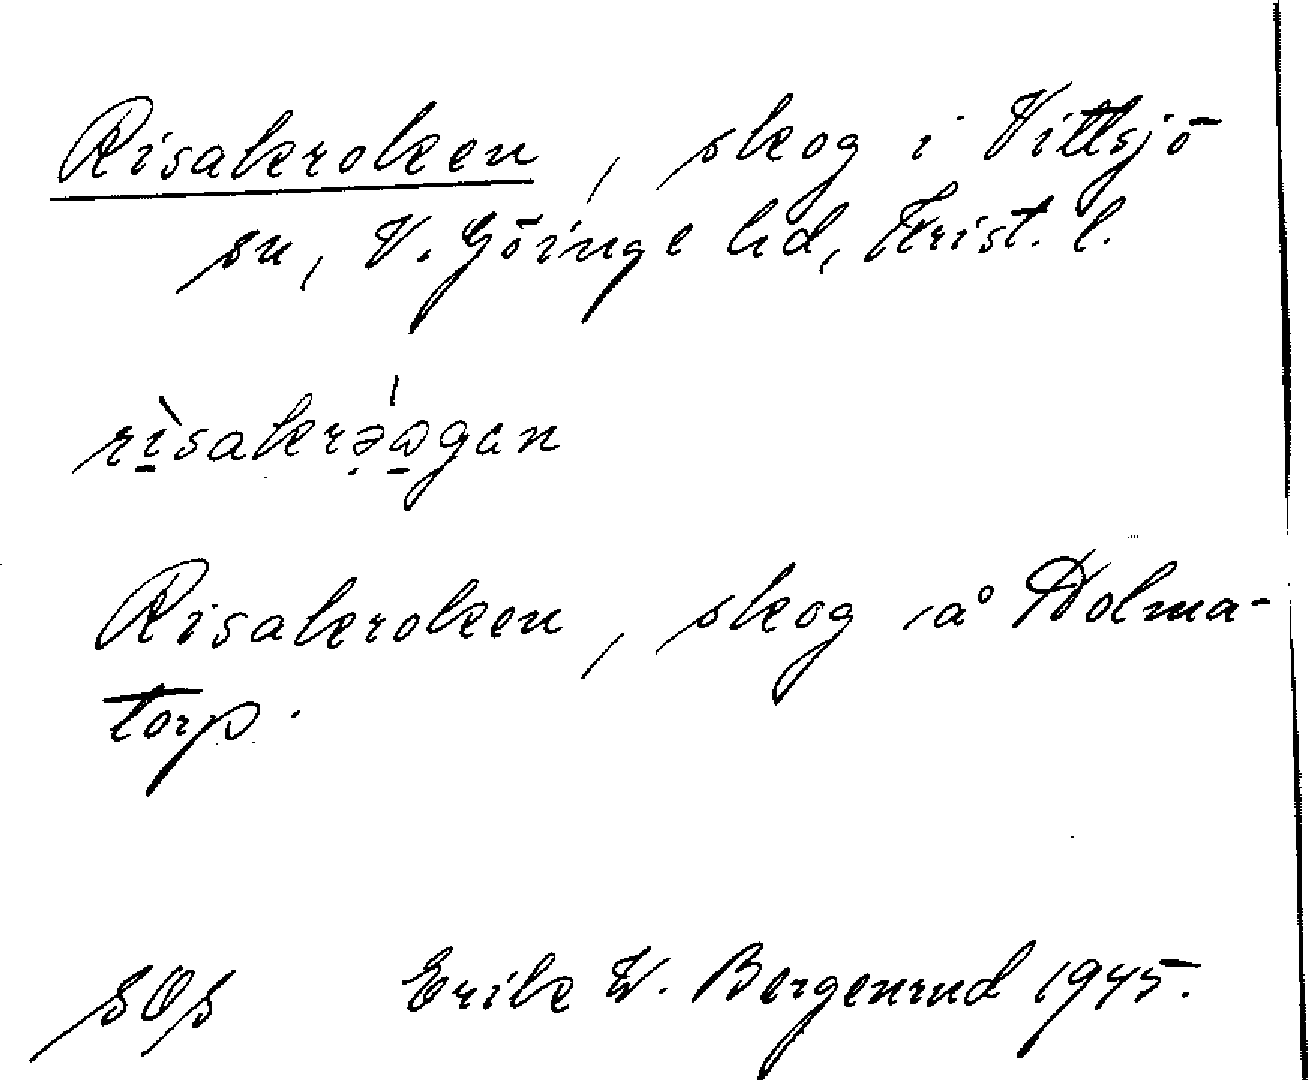 Risakroken, skog i Vittsjö
sn, V. Göinge hd, Krist. l.
rìsakrə̣́ɷgan
Risakroken, skog å Holma-
torp.
SOS Erik W. Bergenrud 1945.